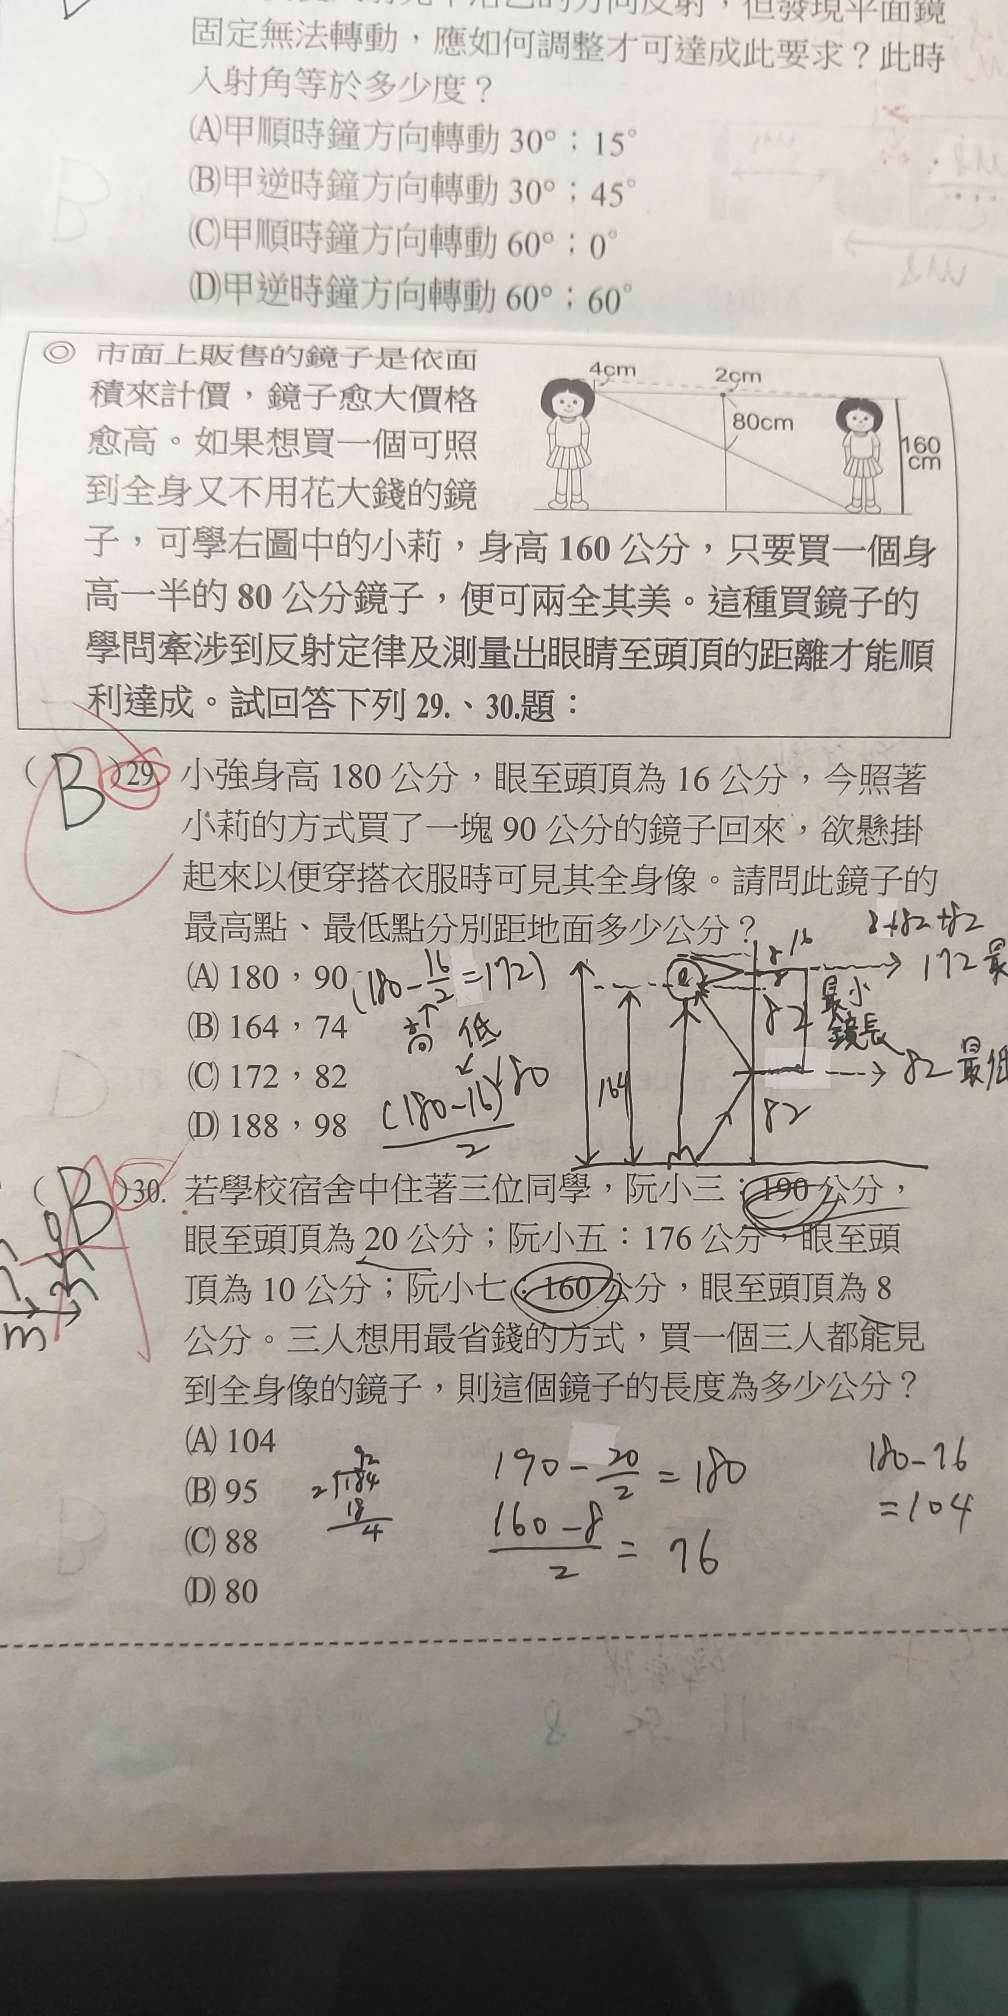 方向反射，但發現平面鏡
固定無法轉動，應如何調整才可達成此要求？此時
入射角等於多少度？
(A)甲順時鐘方向轉動 30°；15°
(B)甲逆時鐘方向轉動 30°；45°
(C)甲順時鐘方向轉動 60°；0°
(D)甲逆時鐘方向轉動 60°；60°
◎ 市面上販售的鏡子是依面
積來計價，鏡子愈大價格
愈高。如果想買一個可照
到全身又不用花大錢的鏡
4cm
2cm
80cm
160
cm
子，可學右圖中的小莉，身高 160 公分，只要買一個身
高一半的 80 公分鏡子，便可兩全其美。這種買鏡子的
學問牽涉到反射定律及測量出眼睛至頭頂的距離才能順
利達成。試回答下列 29.、30.題：
( B )29. 小強身高 180 公分，眼至頭頂為 16 公分，今照著
小莉的方式買了一塊 90 公分的鏡子回來，欲懸掛
起來以便穿搭衣服時可見其全身像。請問此鏡子的
最高點、最低點分別距地面多少公分？
8+82+82
(A) 180，90
(180-16/2=172)
(B) 164，74
高 低
(C) 172，82
(180-16)
2
(D) 188，98
164
8
16
8
82
82
最小
鏡長
172 最
82 最低
( B )30. 若學校宿舍中住著三位同學，阮小三：190 公分，
眼至頭頂為 20 公分；阮小五：176 公分，眼至頭
頂為 10 公分；阮小七：160 公分，眼至頭頂為 8
公分。三人想用最省錢的方式，買一個三人都能見
到全身像的鏡子，則這個鏡子的長度為多少公分？
(A) 104
(B) 95
(C) 88
(D) 80
92
2 184
18
4
190-20/2=180
160-8
2
= 76
180-76
=104
m